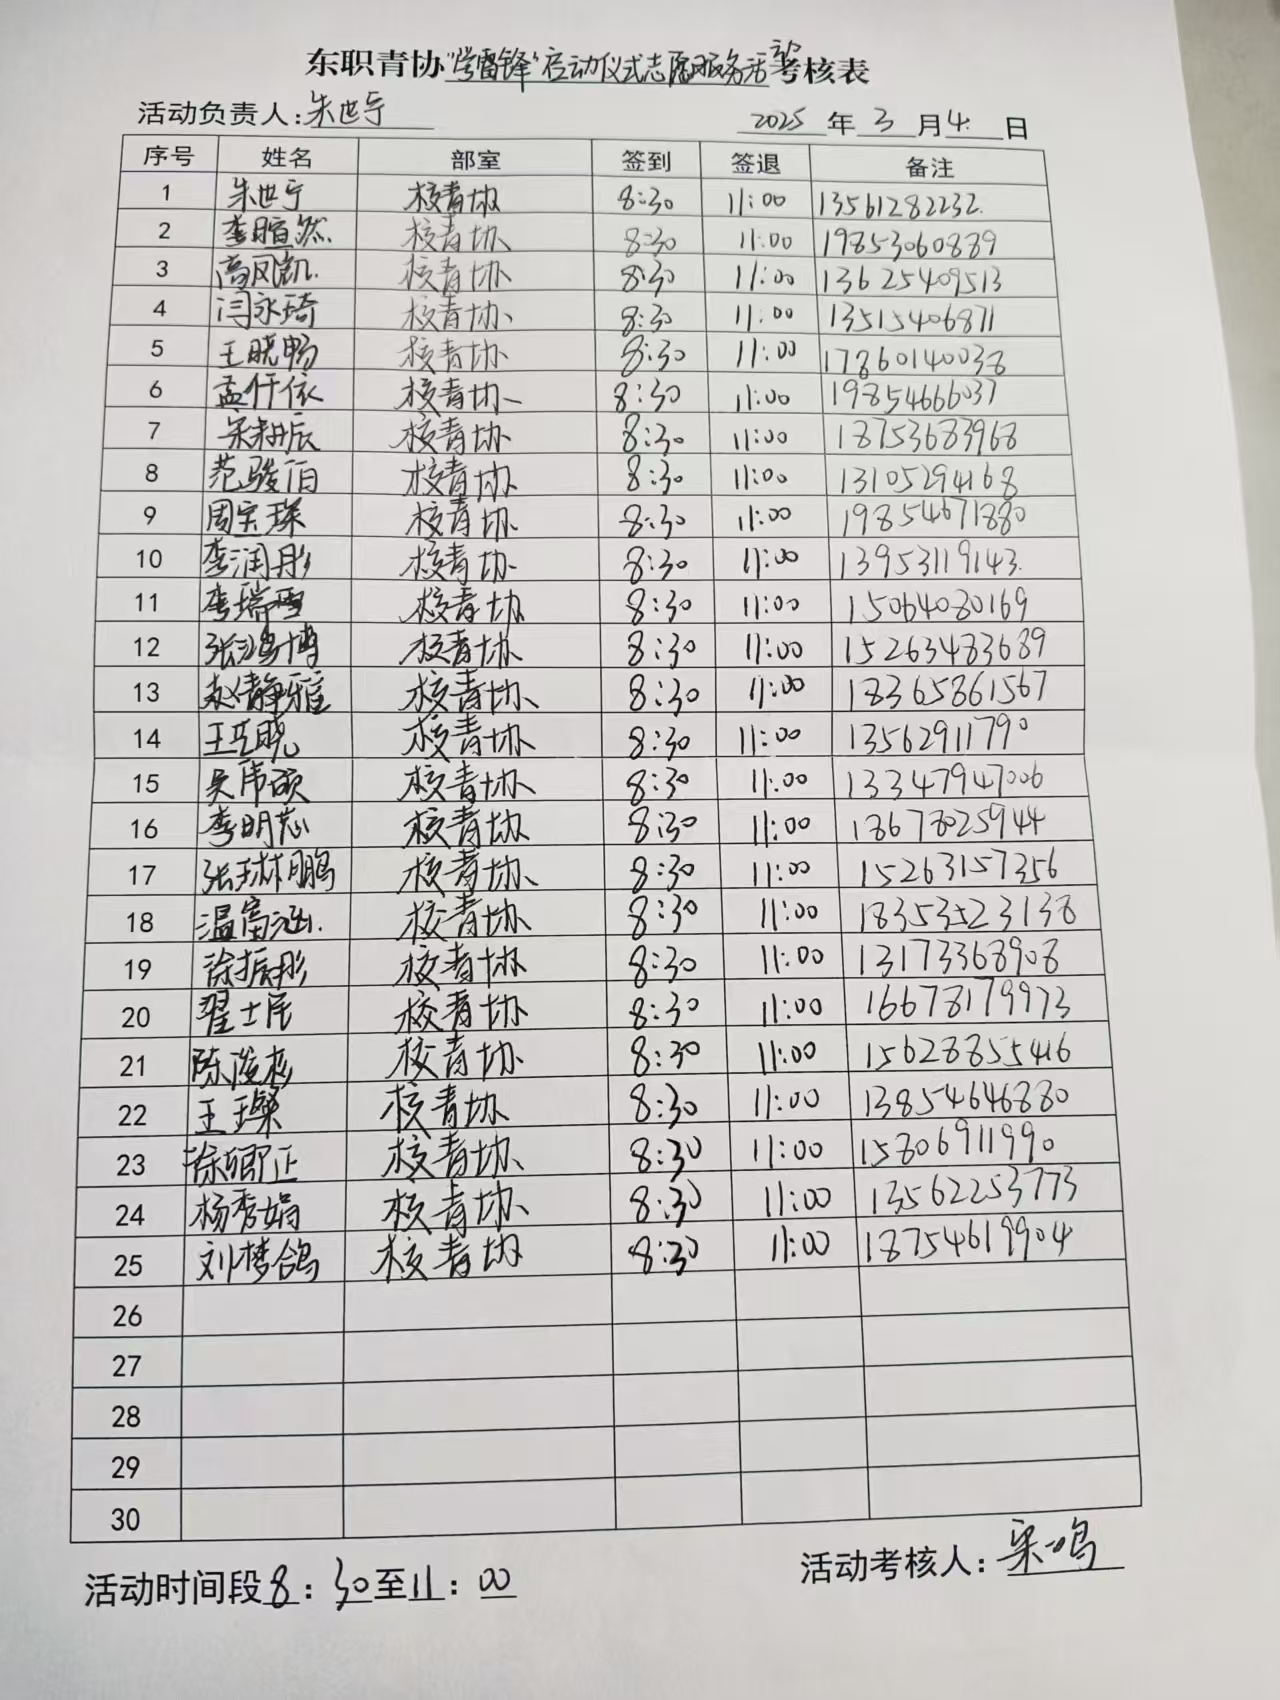 东职青协"学雷锋"启动仪式志愿服务活动考核表
活动负责人:朱世宁 2025 年 3 月 4 日
序号 姓名 部室 签到 签退 备注
1 朱世宁 校青协 8:30 11:00 13561282232
2 李暄然 校青协 8:30 11:00 19853060889
3 高凤凯 校青协 8:30 11:00 13625409513
4 闫永琦 校青协 8:30 11:00 13515406871
5 王晓畅 校青协 8:30 11:00 17860140038
6 孟仟依 校青协 8:30 11:00 19854666037
7 宋耕辰 校青协 8:30 11:00 18753683968
8 范骏佰 校青协 8:30 11:00 13105294168
9 周宝琛 校青协 8:30 11:00 19854671880
10 李润彤 校青协 8:30 11:00 13953119143
11 李瑞 校青协 8:30 11:00 15064080169
12 张鸿博 校青协 8:30 11:00 15263483689
13 赵静雅 校青协 8:30 11:00 18365861567
14 王艺晓 校青协 8:30 11:00 13562911790
15 吴伟硕 校青协 8:30 11:00 13347947006
16 李明芯 校青协 8:30 11:00 18678025944
17 张琳鹏 校青协 8:30 11:00 15263157356
18 温富涵 校青协 8:30 11:00 18353523138
19 徐振彤 校青协 8:30 11:00 13173368908
20 翟士民 校青协 8:30 11:00 16678179973
21 陈俊杉 校青协 8:30 11:00 15628855416
22 王璨 校青协 8:30 11:00 13854646880
23 徐卿正 校青协 8:30 11:00 15806911990
24 杨秀娟 校青协 8:30 11:00 13562253773
25 刘梦鸽 校青协 8:30 11:00 18754619904
26
27
28
29
30
活动时间段 8:30 至 11:00 活动考核人:梁一鸣